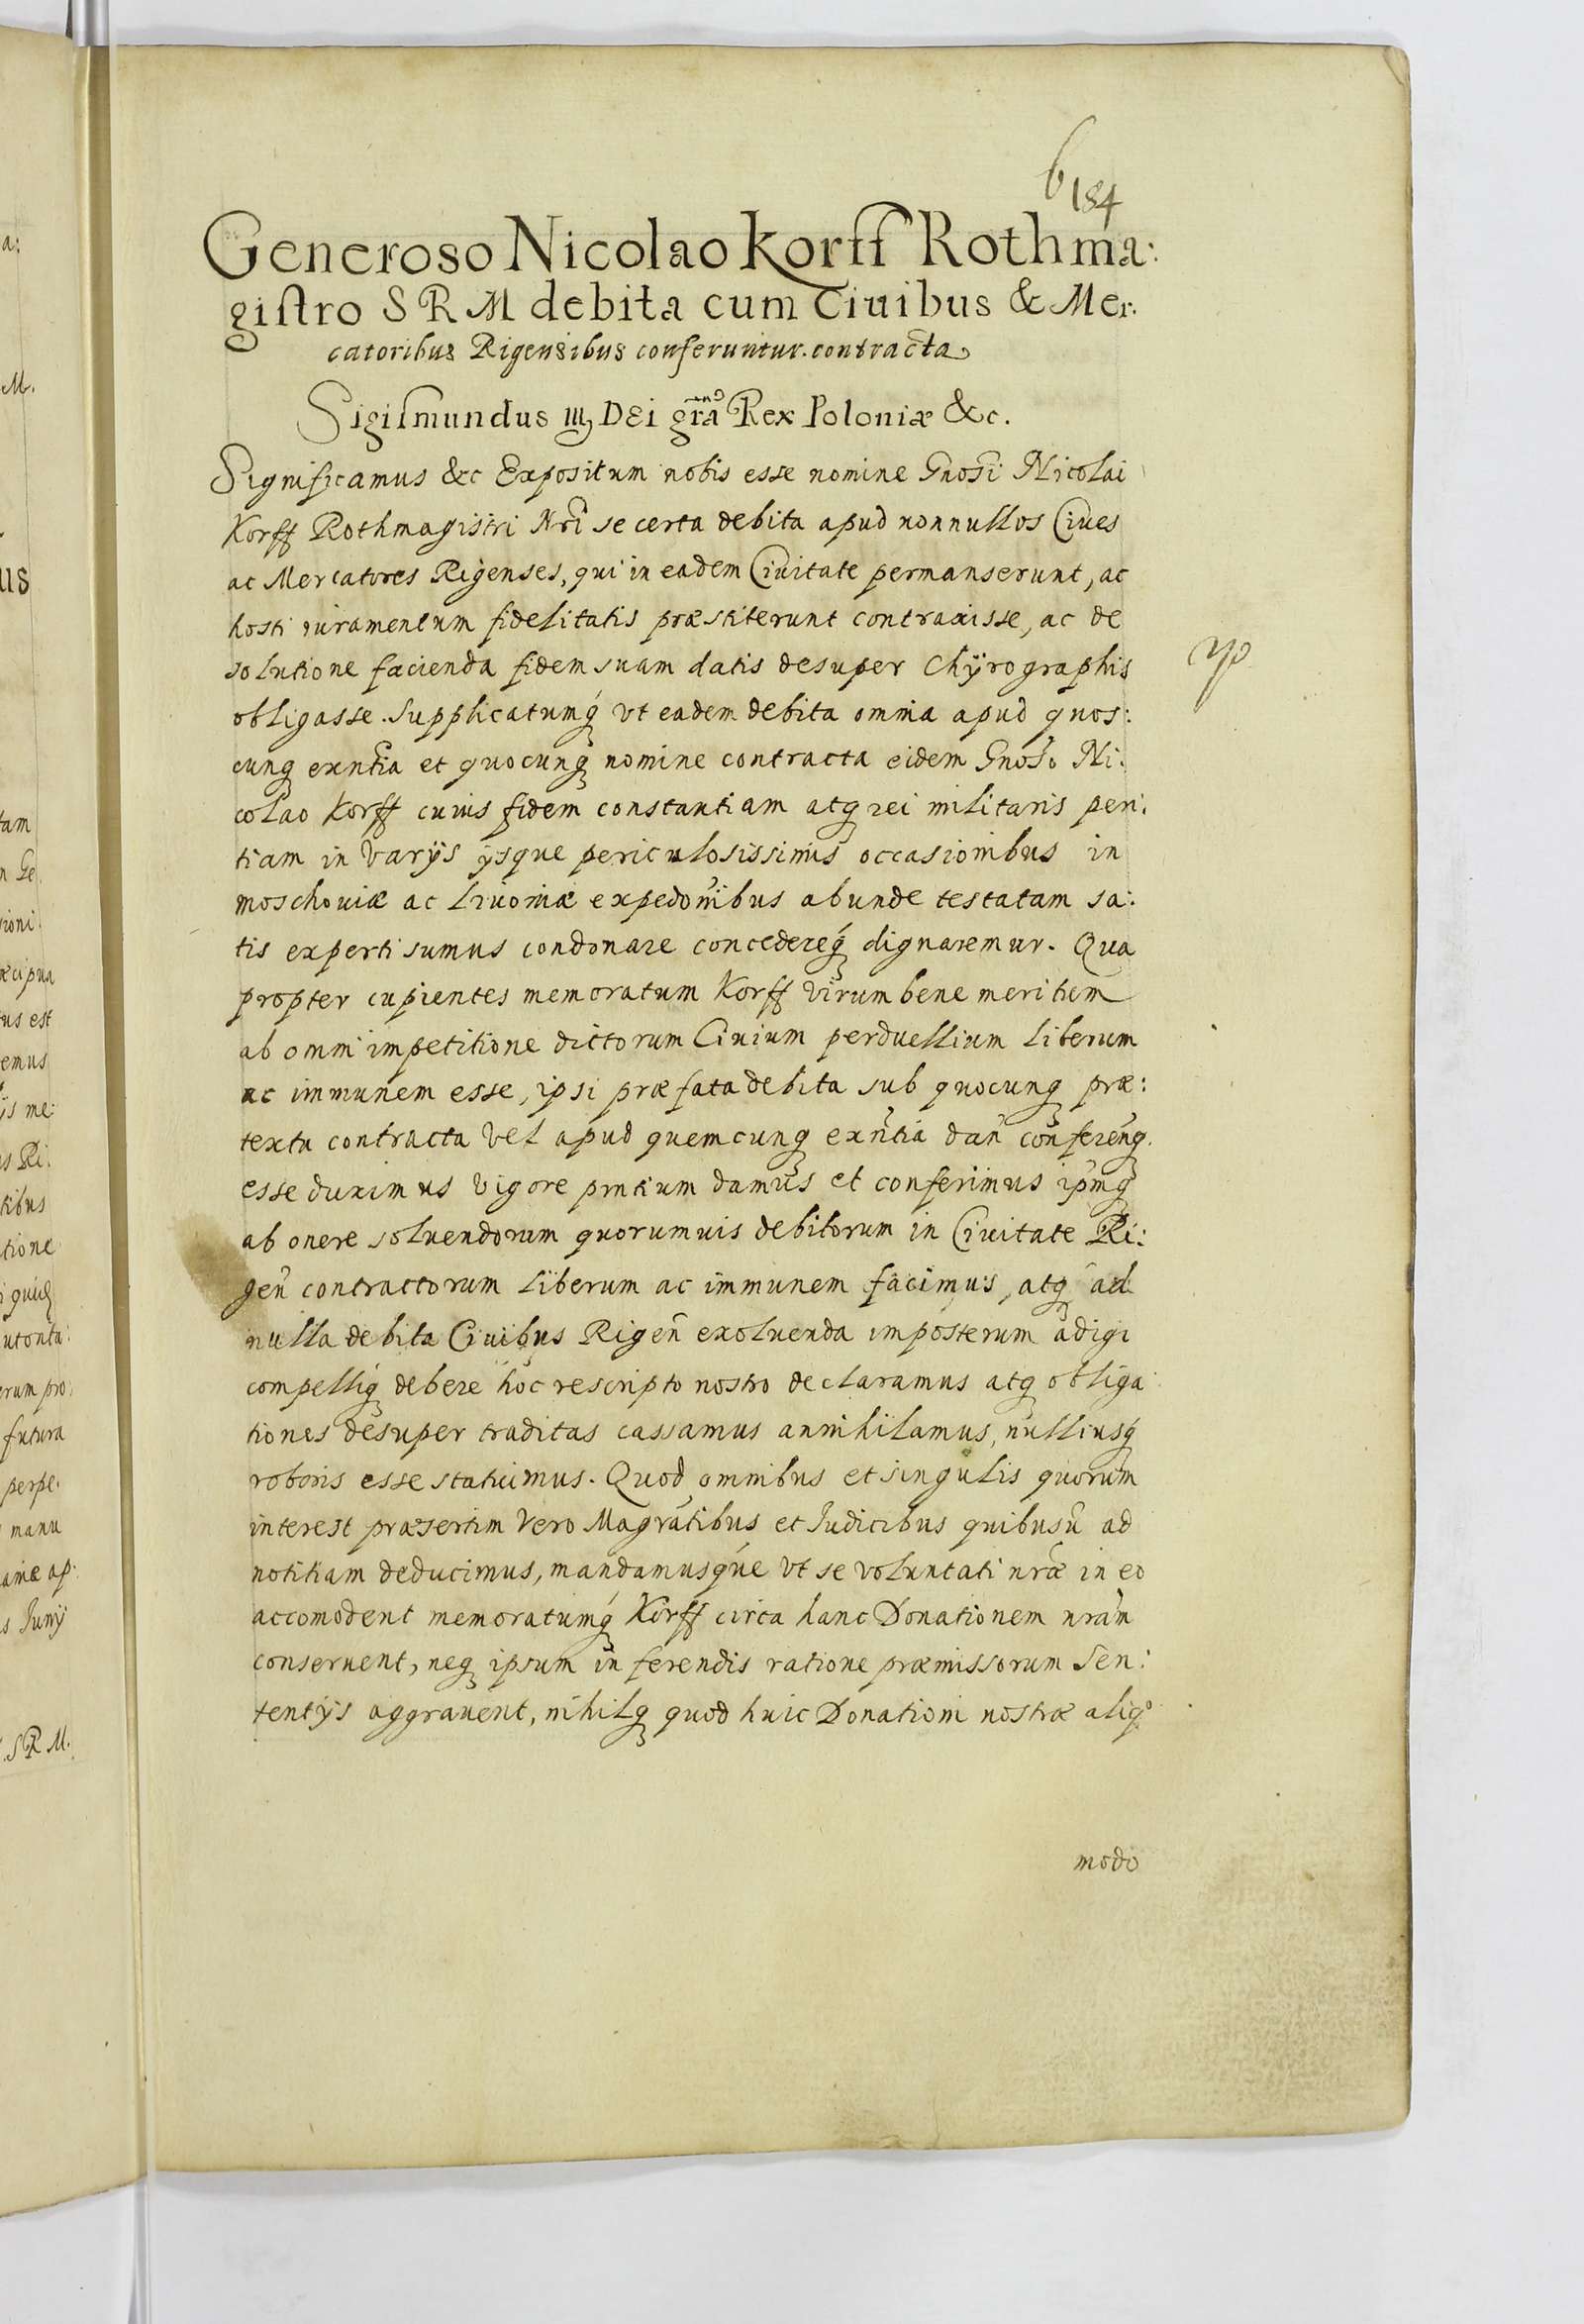 6
184
Generoso Nicolao Korff Rothma:
gistro S R M debita cum Ciuibus & Mer:
catoribus Rigensibus conferuntur contracta
Sigismundus III Dei gra Rex Poloniæ &c.
Significamus &c Expositum nobis esse nomine Gnosi Nicolai
Korff Rothmagistri Nri se certa debita apud nonnullos Ciues
ac Mercatores Rigenses, qui in eadem Ciuitate permanserunt, ac
hosti iuramentum fidelitatis præstiterunt contraxisse, ac de
solutione facienda fidem suam datis desuper Chÿrographis
obligasse. Supplicatumq́ vt eadem debita omnia apud quos:
cunq exntia et quocunq nomine contracta eidem Gnoso Ni:
colao Korff cuius fidem constantiam atq rei militaris peri:
tiam in varÿs ÿsque periculosissimis occasionibus in
moschouiæ ac Liuoniæ expedonibus abunde testatam sa:
tis experti sumus condonare concedereq́ dignaremur. Qua
propter cupientes memoratum Korff virum bene meritum
ab omni impetitione dictorum Ciuium perduellium liberum
ac immunem esse, ipsi præfata debita sub quocunq præ:
textu contracta vel apud quemcunq exntia dan conferenq.
esse duximus vigore pntium damus et conferimus ipmq
ab onere soluendorum quorumuis debitorum in Ciuitate Ri:
gen contractorum liberum ac immunem facimus, atq ad
nulla debita Ciuibus Rigen exoluenda imposterum adigi
compelliq debere hoc rescripto nostro declaramus atq obliga
tiones desuper traditas cassamus annihilamus, nulliusq́
roboris esse statuimus. Quod omnibus et singulis quorum
interest præsertim vero Magratibus et Iudicibus quibusu ad
notitiam deducimus, mandamusque vt se voluntati nræ in eo
accomodent memoratumq́ Korff circa hanc Donationem nram
conseruent, neq ipsum in ferendis ratione præmissorum Sen:
tentÿs aggrauent, nihilq quod huic Donationi nostræ aliqo
modo